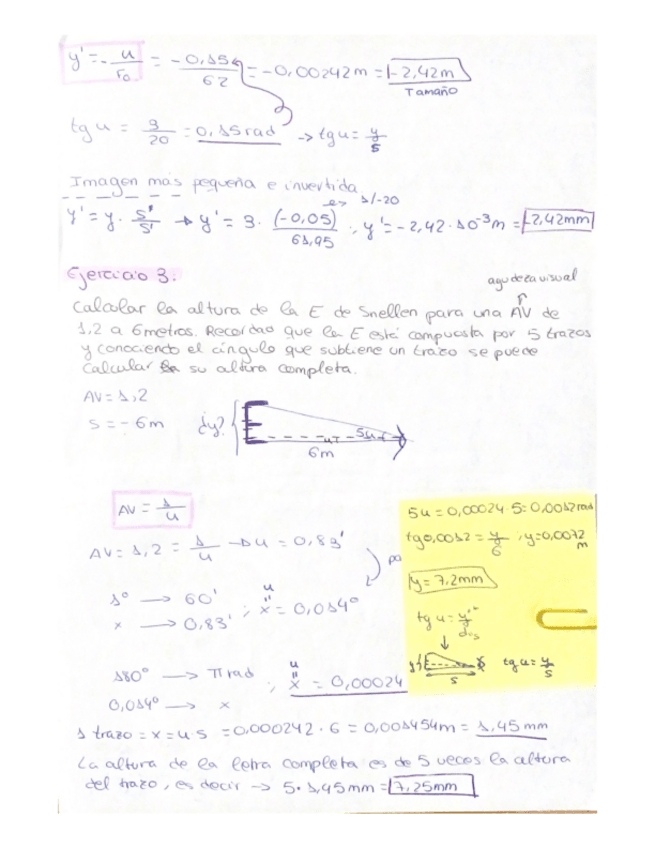 y' = - u/r₀ = - 0,15/62 = -0,00242m = -2,42m
Tamaño
tg u = 3/20 = 0,15 rad → tg u = y/s
Imagen más pequeña e invertida
→ 1/-20
y' = y · s'/s' → y' = 3 · (-0,05)/61,95 ; y' = -2,42 · 10⁻³ m = -2,42mm
Ejercicio 3:
agudeza visual
Calcular la altura de la E de Snellen para una AV de
1,2 a 6 metros. Recordad que la E está compuesta por 5 trazos
y conociendo el ángulo que subtiene un trazo se puede
calcular su altura completa.
AV = 1,2
s = - 6m
¿y?
5u
u
6m
AV = 1/u
AV = 1,2 = 1/u → u = 0,83'
1° → 60'
x → 0,83' ; u = x = 0,014°
180° → π rad
0,014° → x ; u = x = 0,00024
5u = 0,00024 · 5 = 0,0012 rad
tg 0,0012 = y/6 , y = 0,0072 m
y = 7,2mm
s
tg u = y/s
1 trazo = x = u · s = 0,000242 · 6 = 0,001454m = 1,45 mm
La altura de la letra completa es de 5 veces la altura
del trazo, es decir → 5 · 1,45mm = 7,25mm